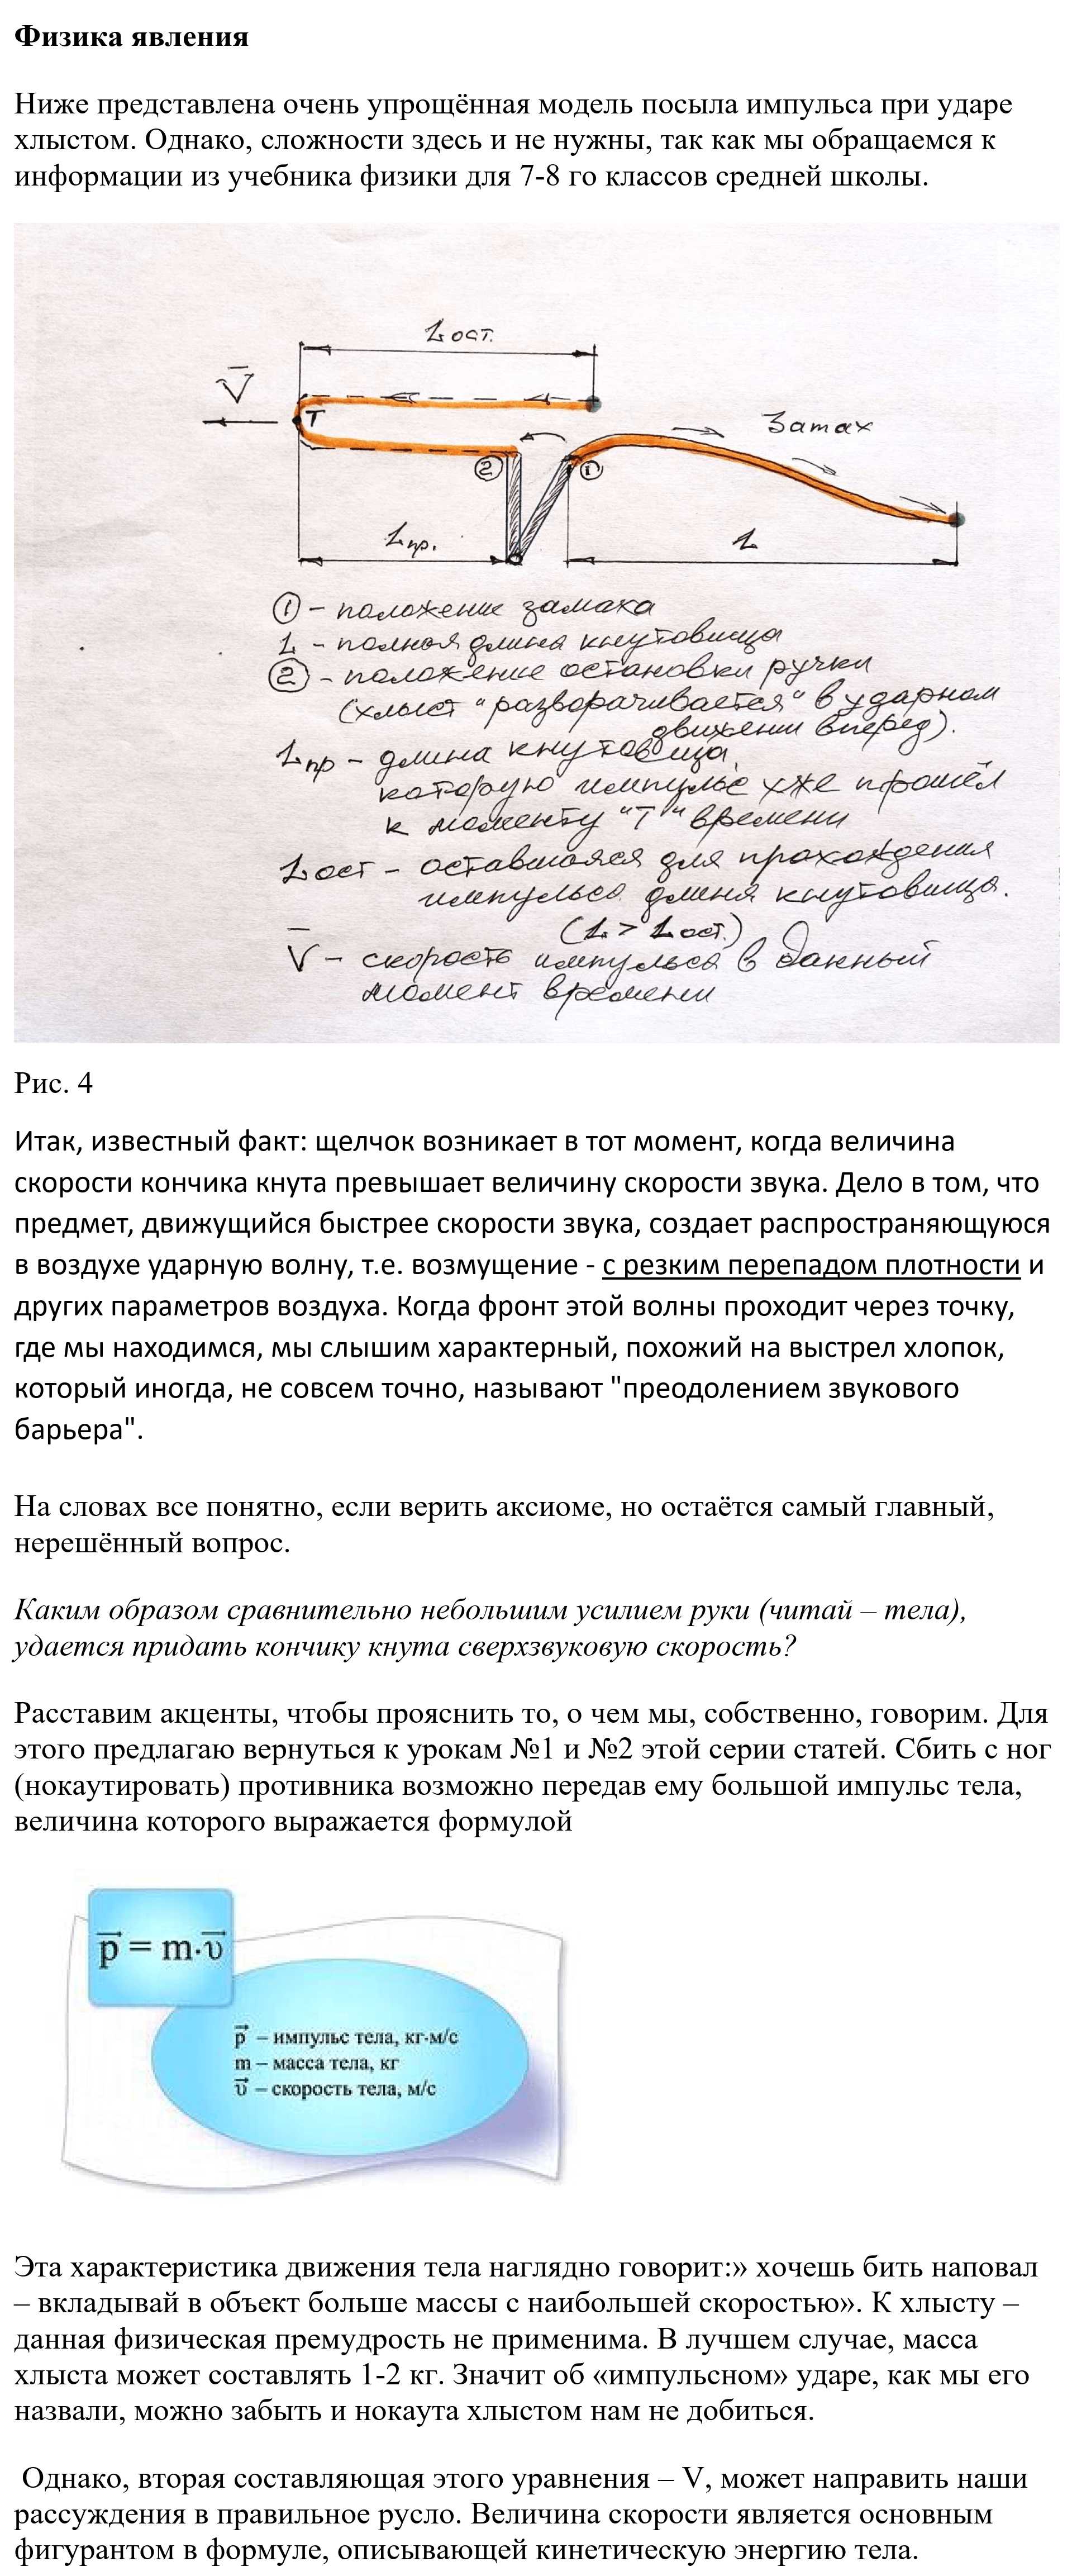 Физика явления
Ниже представлена очень упрощённая модель посыла импульса при ударе
хлыстом. Однако, сложности здесь и не нужны, так как мы обращаемся к
информации из учебника физики для 7-8 го классов средней школы.
Lост.
V
T
Замах
2
1
Lпр.
L
1 - положение замаха
L - полная длина кнутовища
2 - положение остановки ручки
(хлыст "разворачивается" в ударном
движении вперед).
Lпр - длина кнутовища,
которую импульс уже прошёл
к моменту "Т" времени
Lост - оставшаяся для прохождения
импульса длина кнутовища.
(L > Lост.)
V - скорость импульса в данный
момент времени
Рис. 4
Итак, известный факт: щелчок возникает в тот момент, когда величина
скорости кончика кнута превышает величину скорости звука. Дело в том, что
предмет, движущийся быстрее скорости звука, создает распространяющуюся
в воздухе ударную волну, т.е. возмущение - с резким перепадом плотности и
других параметров воздуха. Когда фронт этой волны проходит через точку,
где мы находимся, мы слышим характерный, похожий на выстрел хлопок,
который иногда, не совсем точно, называют "преодолением звукового
барьера".
На словах все понятно, если верить аксиоме, но остаётся самый главный,
нерешённый вопрос.
Каким образом сравнительно небольшим усилием руки (читай – тела),
удается придать кончику кнута сверхзвуковую скорость?
Расставим акценты, чтобы прояснить то, о чем мы, собственно, говорим. Для
этого предлагаю вернуться к урокам №1 и №2 этой серии статей. Сбить с ног
(нокаутировать) противника возможно передав ему большой импульс тела,
величина которого выражается формулой
p = m·υ
p – импульс тела, кг·м/с
m – масса тела, кг
υ – скорость тела, м/с
Эта характеристика движения тела наглядно говорит:» хочешь бить наповал
– вкладывай в объект больше массы с наибольшей скоростью». К хлысту –
данная физическая премудрость не применима. В лучшем случае, масса
хлыста может составлять 1-2 кг. Значит об «импульсном» ударе, как мы его
назвали, можно забыть и нокаута хлыстом нам не добиться.
Однако, вторая составляющая этого уравнения – V, может направить наши
рассуждения в правильное русло. Величина скорости является основным
фигурантом в формуле, описывающей кинетическую энергию тела.